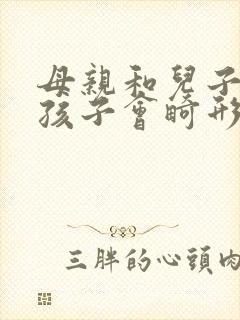 母親和兒子
孩子會畸形
三胖的心頭肉